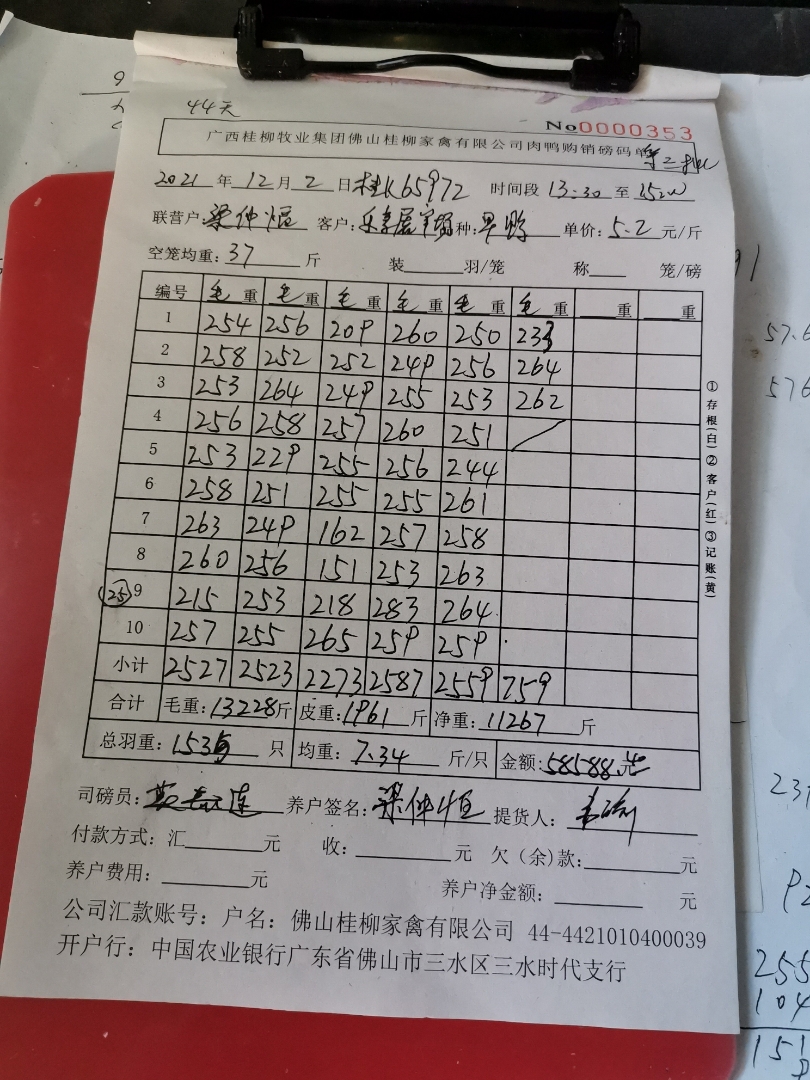 44天
No0000353
广西桂柳牧业集团佛山桂柳家禽有限公司肉鸭购销磅码单
2021年12月2日桂K65972 时间段13:30至15:
联营户: 梁仲恒 客户: 种: 单价: 5.2元/斤
空笼均重: 37斤 装 羽/笼 称 笼/磅
编号 毛重 毛重 毛重 毛重 毛重 毛重 重 重
1 254 256 209 260 250 233
2 258 252 252 249 256 264
3 253 264 249 255 253 262
4 256 258 257 260 251 /
5 253 229 255 256 244
6 258 251 255 255 261
7 263 249 162 257 258
8 260 256 151 253 263
(25) 9 215 253 218 283 264
10 257 255 265 259 259
小计 2527 2523 2273 2587 2559 759
合计 毛重:13228斤 皮重:1961斤 净重:11267斤
总羽重:1535只 均重:7.34斤/只 金额:58588元
司磅员: 养户签名:梁仲恒 提货人:
付款方式:汇 元 收: 元 欠(余)款: 元
养户费用: 元 养户净金额: 元
公司汇款账号:户名:佛山桂柳家禽有限公司 44-4421010400039
开户行:中国农业银行广东省佛山市三水区三水时代支行
①存根(白)②客户(红)③记账(黄)
57.6
576
231
255
104
151